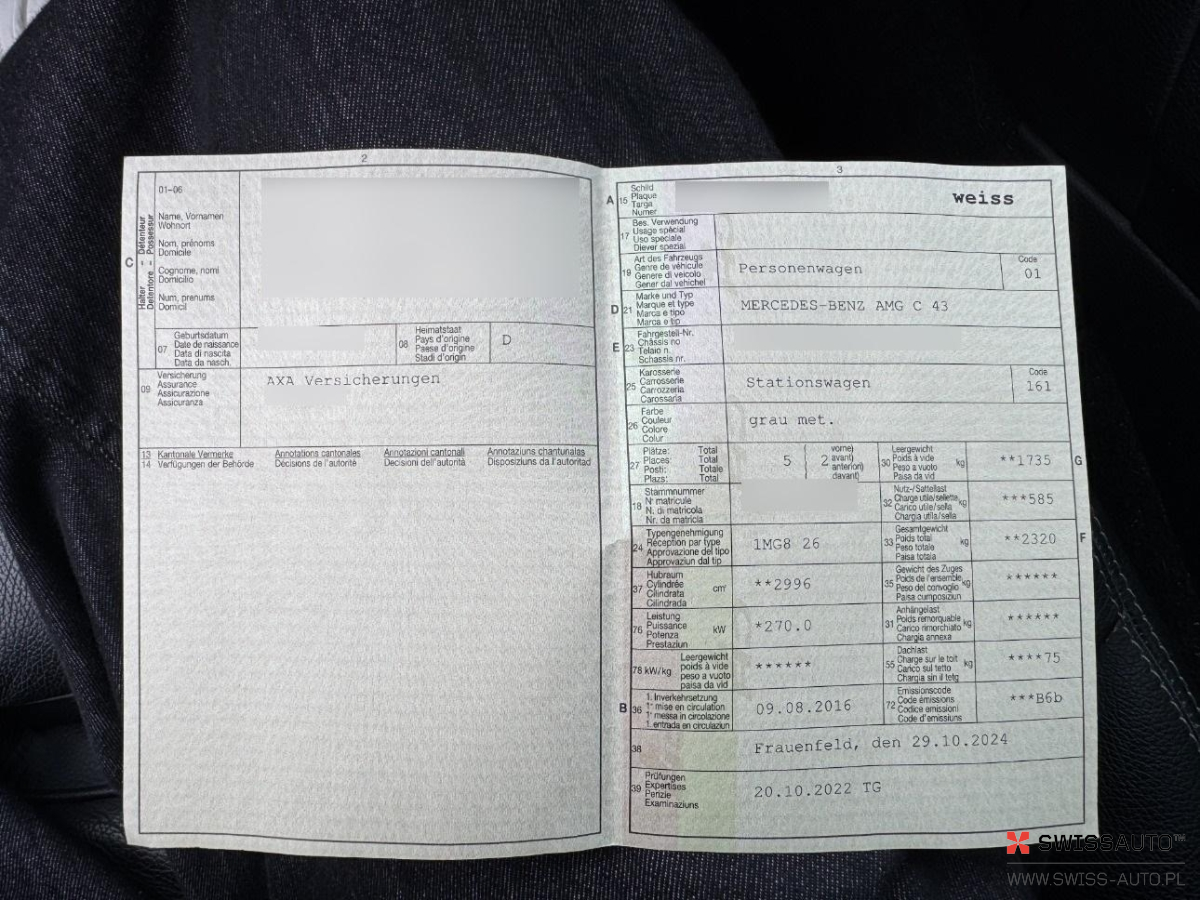 2
01-06
Halter – Détenteur
Detentore – Possessur
C
Name, Vornamen
Wohnort
Nom, prénoms
Domicile
Cognome, nomi
Domicilio
Num, prenums
Domicil
07
Geburtsdatum
Date de naissance
Data di nascita
Data da nasch.
08
Heimatstaat
Pays d'origine
Paese d'origine
Stadi d'origin
D
09
Versicherung
Assurance
Assicurazione
Assicuranza
AXA Versicherungen
13 Kantonale Vermerke Annotations cantonales Annotazioni cantonali Annotaziuns chantunalas
14 Verfügungen der Behörde Décisions de l'autorité Decisioni dell'autorità Disposiziuns da l'autoritad
3
A 15
Schild
Plaque
Targa
Numer
weiss
17
Bes. Verwendung
Usage spécial
Uso speciale
Diever spezial
19
Art des Fahrzeugs
Genre de véhicule
Genere di veicolo
Gener dal vehichel
Personenwagen
Code
01
D 21
Marke und Typ
Marque et type
Marca e tipo
Marca e tip
MERCEDES-BENZ AMG C 43
E 23
Fahrgestell-Nr.
Châssis no
Telaio n.
Schassis nr.
25
Karosserie
Carrosserie
Carrozzeria
Carossaria
Stationswagen
Code
161
26
Farbe
Couleur
Colore
Colur
grau met.
27
Plätze: Total
Places: Total
Posti: Totale
Plazs: Total
5
2
vorne)
avant)
anteriori)
davant)
30
Leergewicht
Poids à vide
Peso a vuoto
Paisa da vid
kg
**1735
G
18
Stammnummer
No matricule
N. di matricola
Nr. da matricla
32
Nutz-/Sattellast
Charge utile/sellette
Carico utile/sella
Chargia utila/sella
kg
***585
24
Typengenehmigung
Réception par type
Approvazione del tipo
Approvaziun dal tip
1MG8 26
33
Gesamtgewicht
Poids total
Peso totale
Paisa totala
kg
**2320
F
37
Hubraum
Cylindrée
Cilindrata
Cilindrada
cm³
**2996
35
Gewicht des Zuges
Poids de l'ensemble
Peso del convoglio
Paisa cumposiziun
kg
******
76
Leistung
Puissance
Potenza
Prestaziun
kW
*270.0
31
Anhängelast
Poids remorquable
Carico rimorchiato
Chargia annexa
kg
******
78 kW/kg
Leergewicht
poids à vide
peso a vuoto
paisa da vid
******
55
Dachlast
Charge sur le toit
Carico sul tetto
Chargia sin il tetg
kg
****75
B 36
1. Inverkehrsetzung
1re mise en circulation
1a messa in circolazione
1. entrada en circulaziun
09.08.2016
72
Emissionscode
Code émissions
Codice emissioni
Code d'emissiuns
***B6b
38
Frauenfeld, den 29.10.2024
39
Prüfungen
Expertises
Perizie
Examinaziuns
20.10.2022 TG
SWISSAUTO™
WWW.SWISS-AUTO.PL